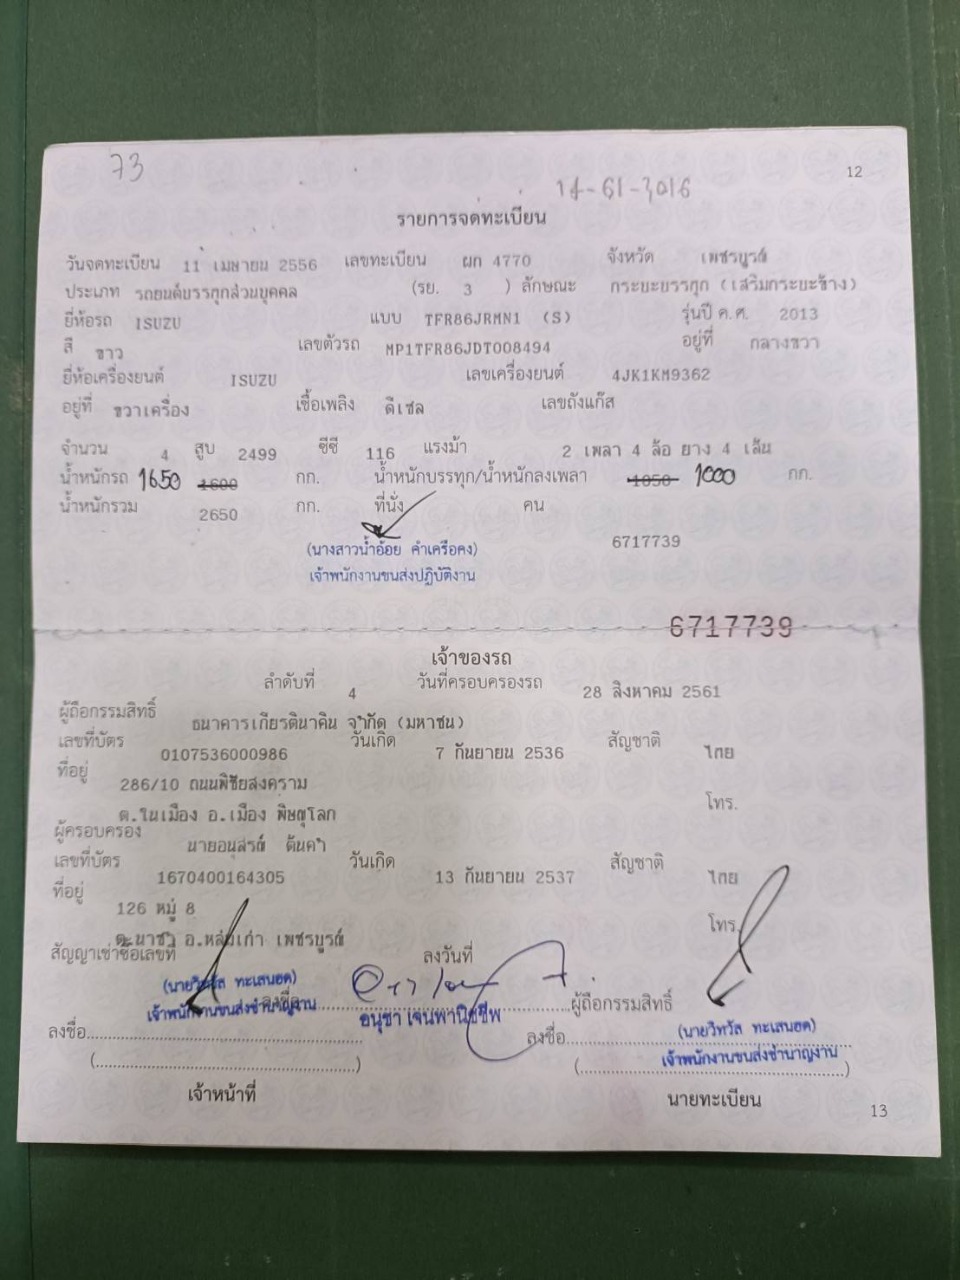 73
12
14-61-3016
รายการจดทะเบียน
วันจดทะเบียน 11 เมษายน 2556 เลขทะเบียน ผก 4770 จังหวัด เพชรบูรณ์
ประเภท รถยนต์บรรทุกส่วนบุคคล (รย. 3 ) ลักษณะ กระบะบรรทุก (เสริมกระบะข้าง)
ยี่ห้อรถ ISUZU แบบ TFR86JRMN1 (S) รุ่นปี ค.ศ. 2013
สี ขาว เลขตัวรถ MP1TFR86JDT008494 อยู่ที่ กลางขวา
ยี่ห้อเครื่องยนต์ ISUZU เลขเครื่องยนต์ 4JK1KM9362
อยู่ที่ ขวาเครื่อง เชื้อเพลิง ดีเซล เลขถังแก๊ส
จำนวน 4 สูบ 2499 ซีซี 116 แรงม้า 2 เพลา 4 ล้อ ยาง 4 เส้น
น้ำหนักรถ 1650 1600 กก. น้ำหนักบรรทุก/น้ำหนักลงเพลา 1050 1000 กก.
น้ำหนักรวม 2650 กก. ที่นั่ง คน
(นางสาวน้ำอ้อย คำเครือคง) 6717739
เจ้าพนักงานขนส่งปฏิบัติงาน
6717739
เจ้าของรถ
ลำดับที่ 4 วันที่ครอบครองรถ 28 สิงหาคม 2561
ผู้ถือกรรมสิทธิ์ ธนาคารเกียรตินาคิน จำกัด (มหาชน)
เลขที่บัตร 0107536000986 วันเกิด 7 กันยายน 2536 สัญชาติ ไทย
ที่อยู่ 286/10 ถนนพิชัยสงคราม
ต.ในเมือง อ.เมือง พิษณุโลก โทร.
ผู้ครอบครอง นายอนุสรณ์ ต้นคำ
เลขที่บัตร 1670400164305 วันเกิด 13 กันยายน 2537 สัญชาติ ไทย
ที่อยู่ 126 หมู่ 8
ต.นาซำ อ.หล่มเก่า เพชรบูรณ์ โทร.
สัญญาเช่าซื้อเลขที่ ลงวันที่
(นายวิทวัส ทะเสนฮด) ลงชื่อ ผู้ถือกรรมสิทธิ์
เจ้าพนักงานขนส่งชำนาญงาน อนุชา เจนพานิชชีพ
ลงชื่อ ลงชื่อ (นายวิทวัส ทะเสนฮด)
( ) ( เจ้าพนักงานขนส่งชำนาญงาน )
เจ้าหน้าที่ นายทะเบียน
13